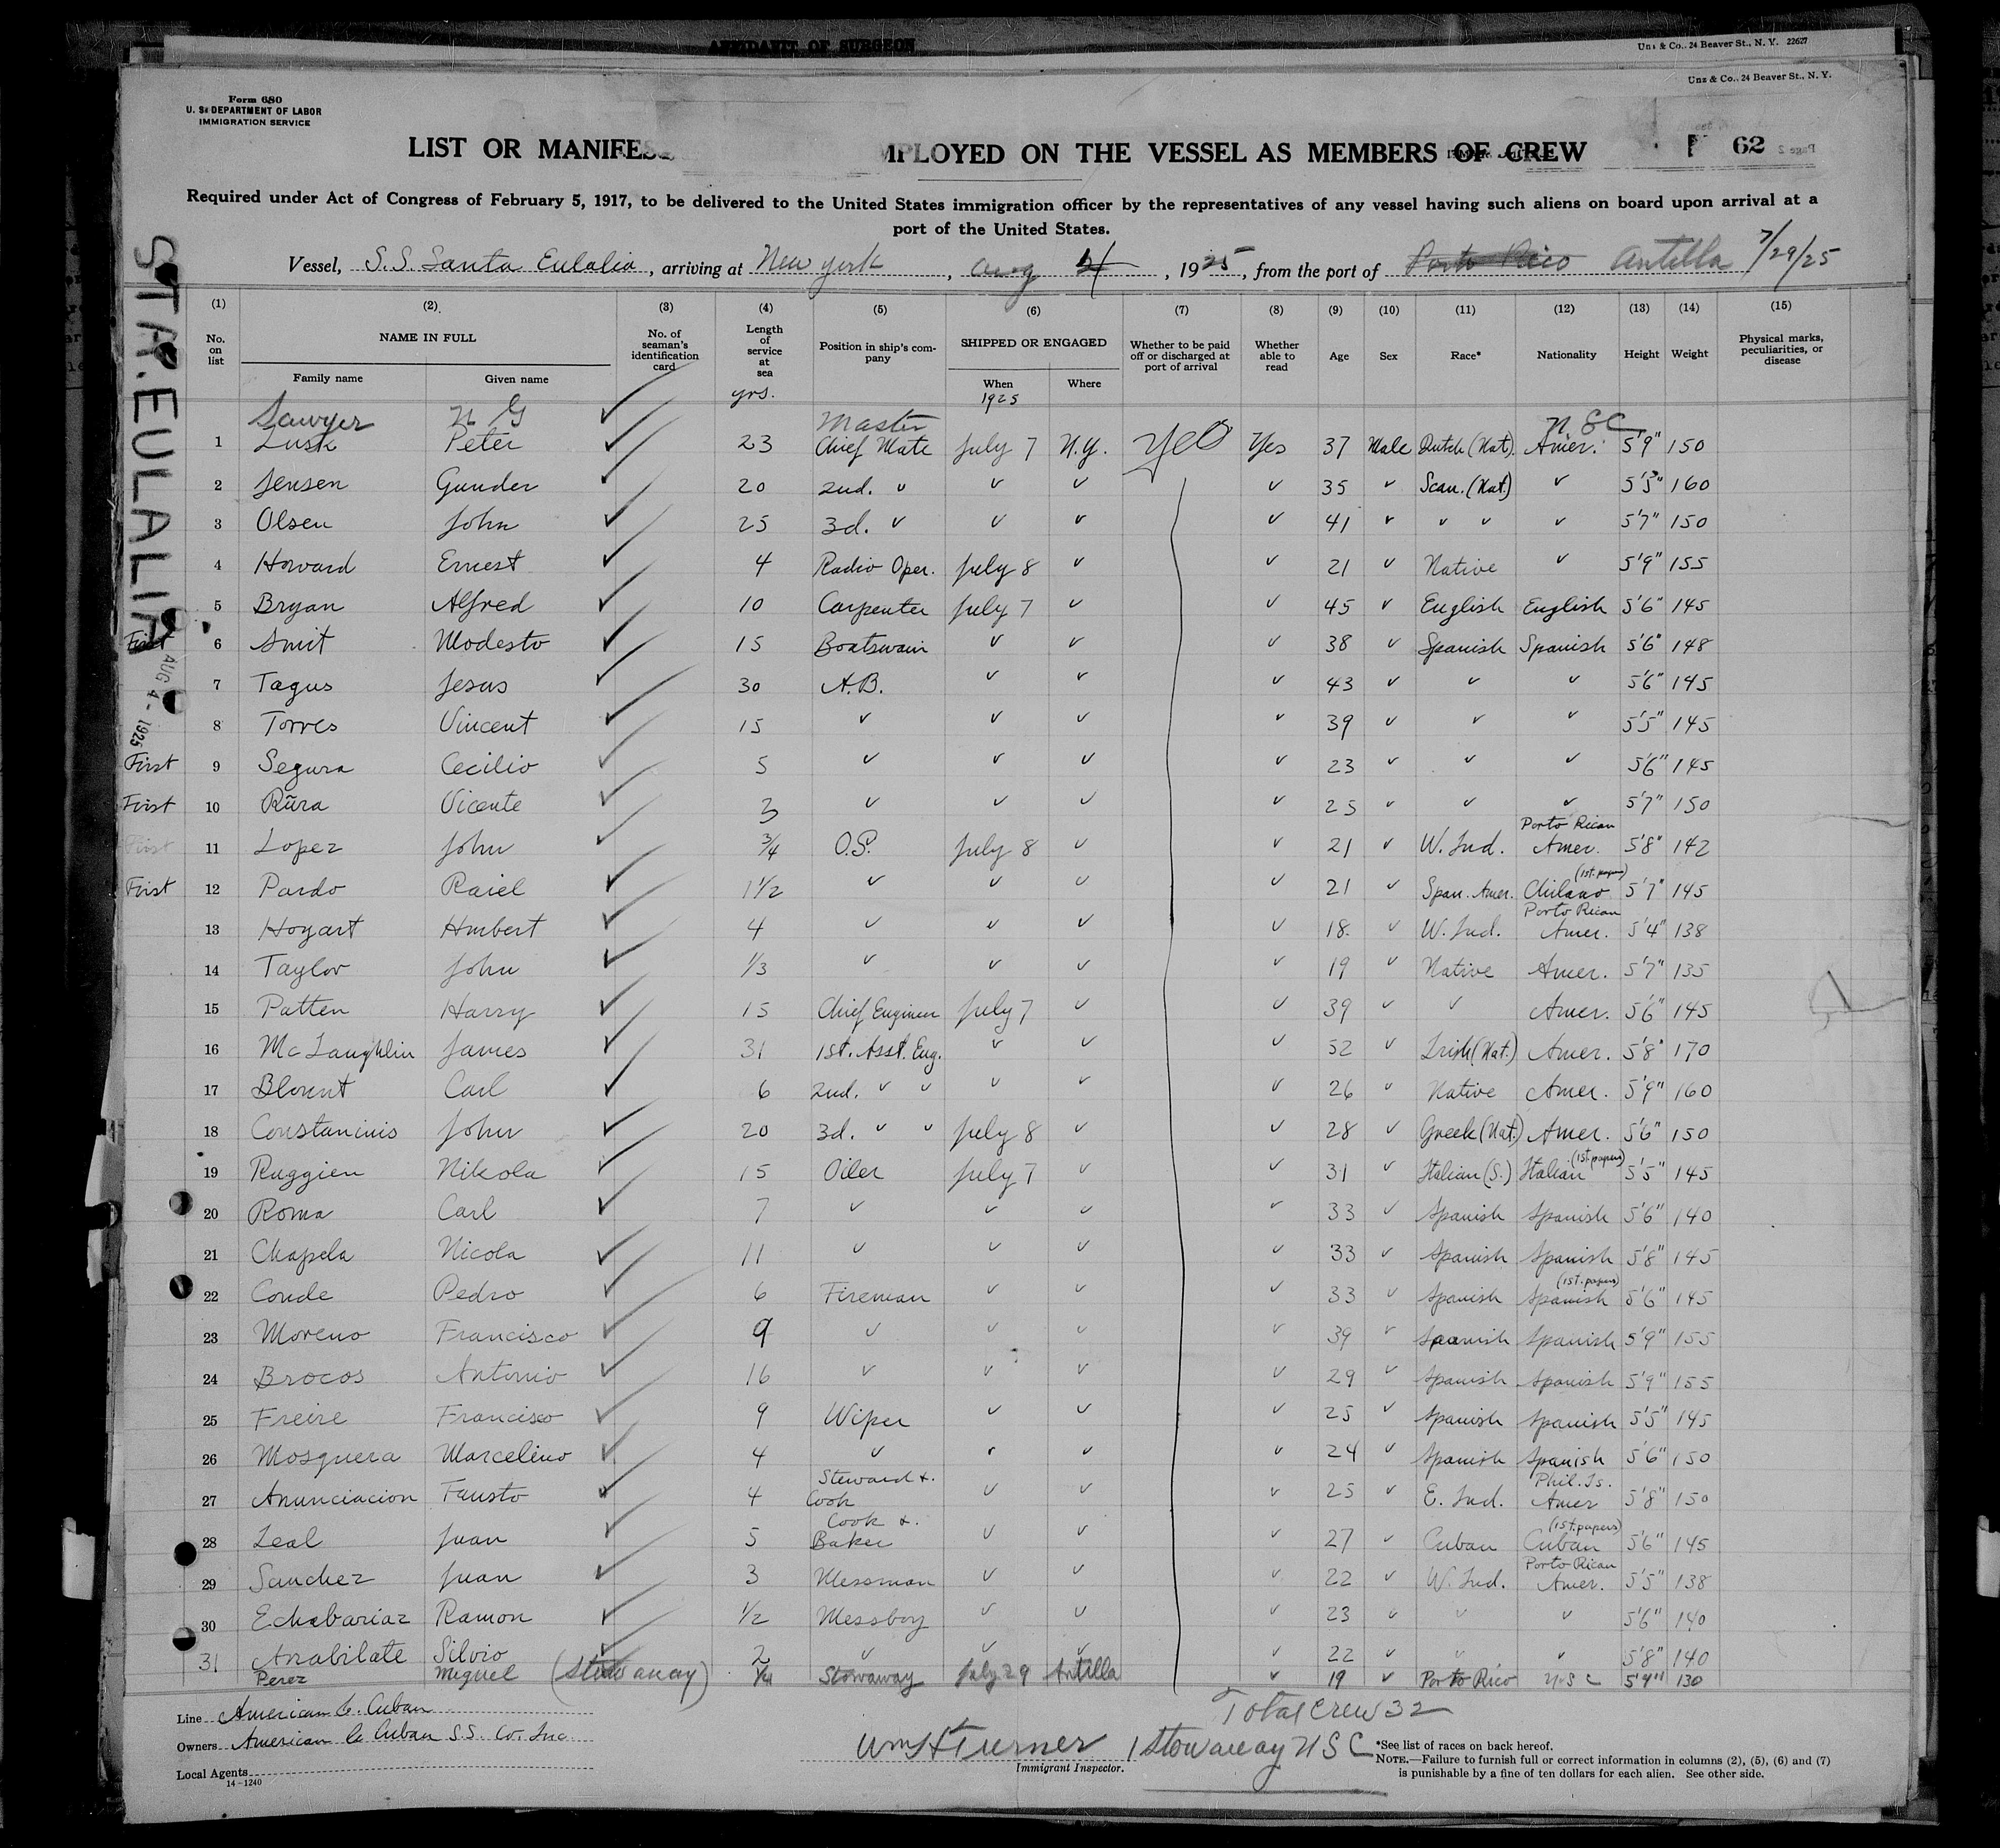 AFFIDAVIT OF SURGEON
Unz & Co., 24 Beaver St., N. Y. 22627
Unz & Co., 24 Beaver St., N. Y.
Form 680
U. S. DEPARTMENT OF LABOR
IMMIGRATION SERVICE
LIST OR MANIFES MPLOYED ON THE VESSEL AS MEMBERS OF CREW 62
Required under Act of Congress of February 5, 1917, to be delivered to the United States immigration officer by the representatives of any vessel having such aliens on board upon arrival at a
port of the United States.
Vessel, S.S. Santa Eulalia, arriving at New York, Aug 4, 1925, from the port of Porto Rico Antilla 7/29/25
STA. EULALIA
AUG 4 - 1925
(1) (2) (3) (4) (5) (6) (7) (8) (9) (10) (11) (12) (13) (14) (15)
No. on list NAME IN FULL Family name Given name No. of seaman's identification card Length of service at sea Position in ship's company SHIPPED OR ENGAGED When Where Whether to be paid off or discharged at port of arrival Whether able to read Age Sex Race* Nationality Height Weight Physical marks, peculiarities, or disease
yrs. 1925
Sawyer N G ✓ Master U.S.C.
1 Lusk Peter ✓ 23 Chief Mate July 7 N.Y. Yes Yes 37 Male Dutch (Nat). Amer. 5'9" 150
2 Jensen Gunder ✓ 20 2nd. " " " " 35 " Scan. (Nat.) " 5'5" 160
3 Olsen John ✓ 25 3d. " " " " 41 " " " " 5'7" 150
4 Howard Ernest ✓ 4 Radio Oper. July 8 " " 21 " Native " 5'9" 155
5 Bryan Alfred ✓ 10 Carpenter July 7 " " 45 " English English 5'6" 145
First 6 Smit Modesto ✓ 15 Boatswain " " " 38 " Spanish Spanish 5'6" 148
7 Tagus Jesus ✓ 30 A.B. " " " 43 " " " 5'6" 145
8 Torres Vincent ✓ 15 " " " " 39 " " " 5'5" 145
First 9 Segura Cecilio ✓ 5 " " " " 23 " " " 5'6" 145
First 10 Rũra Vicente ✓ 3 " " " " 25 " " " 5'7" 150
First 11 Lopez John ✓ 3/4 O.S. July 8 " " 21 " W. Ind. Porto Rican Amer. 5'8" 142
First 12 Pardo Raiel ✓ 1 1/2 " " " " 21 " Span. Amer. Chilano (1st. papers) 5'7" 145
13 Hogart Humbert ✓ 4 " " " " 18. " W. Ind. Porto Rican Amer. 5'4" 138
14 Taylor John ✓ 1/3 " " " " 19 " Native Amer. 5'7" 135
15 Patten Harry ✓ 15 Chief Engineer July 7 " " 39 " " Amer. 5'6" 145
16 McLaughlin James ✓ 31 1st. Asst. Eng. " " " 52 " Irish (Nat.) Amer. 5'8" 170
17 Blount Carl ✓ 6 2nd. " " " " " 26 " Native Amer. 5'9" 160
18 Constancinis John ✓ 20 3d. " " July 8 " " 28 " Greek (Nat.) Amer. 5'6" 150
19 Ruggien Nikola ✓ 15 Oiler July 7 " " 31 " Italian (S.) Italian (1st. papers) 5'5" 145
20 Roma Carl ✓ 7 " " " " 33 " Spanish Spanish 5'6" 140
21 Chapela Nicola ✓ 11 " " " " 33 " Spanish Spanish 5'8" 145
22 Conde Pedro ✓ 6 Fireman " " " 33 " Spanish (1st. papers) Spanish 5'6" 145
23 Moreno Francisco ✓ 9 " " " " 39 " Spanish Spanish 5'9" 155
24 Brocos Antonio ✓ 16 " " " " 29 " Spanish Spanish 5'9" 155
25 Freire Francisco ✓ 9 Wiper " " " 25 " Spanish Spanish 5'5" 145
26 Mosquera Marcelino ✓ 4 " " " " 24 " Spanish Spanish 5'6" 150
27 Anunciacion Fausto ✓ 4 Steward & Cook " " " 25 " E. Ind. Phil. Is. Amer 5'8" 150
28 Leal Juan ✓ 5 Cook & Baker " " " 27 " Cuban (1st. papers) Cuban 5'6" 145
29 Sanchez Juan ✓ 3 Messman " " " 22 " W. Ind. Porto Rican Amer. 5'5" 138
30 Echabariaz Ramon ✓ 1/2 Messboy " " " 23 " " " 5'6" 140
31 Anabilate Silvio ✓ 2 " " " " 22 " " " 5'8" 140
Perez Miguel (Stowaway) 1/4 Stowaway July 29 Antilla " 19 " Porto Rico U S C 5'4" 130
Total Crew 32
1 Stowaway U S C
Line American & Cuban
Owners American & Cuban S.S. Co. Inc.
Local Agents
14-1240
Wm H Turner
Immigrant Inspector.
*See list of races on back hereof.
NOTE.—Failure to furnish full or correct information in columns (2), (5), (6) and (7)
is punishable by a fine of ten dollars for each alien. See other side.